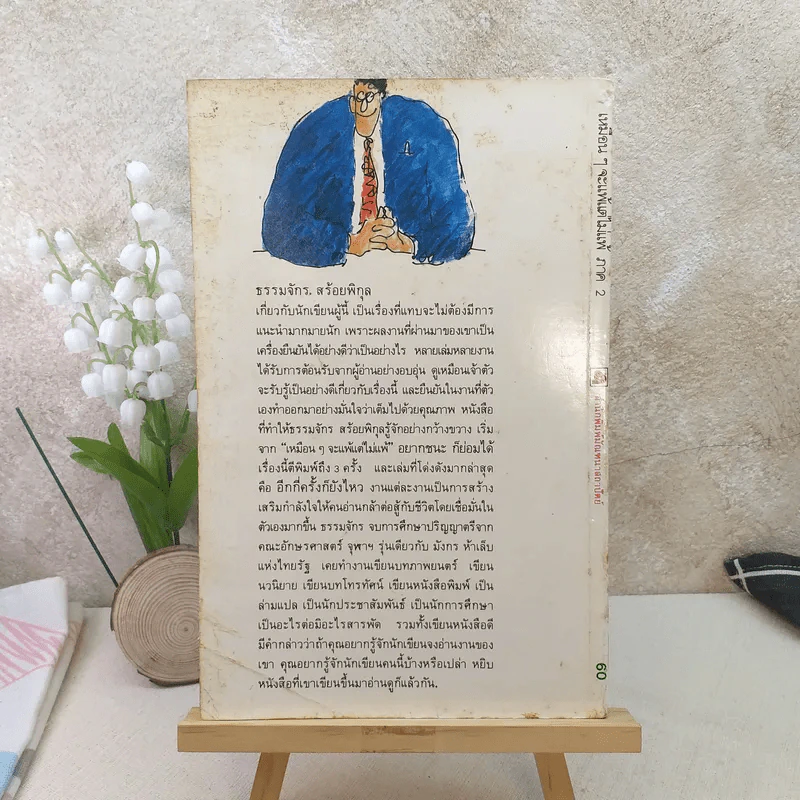 ธรรมจักร. สร้อยพิกุล
เกี่ยวกับนักเขียนผู้นี้ เป็นเรื่องที่แทบจะไม่ต้องมีการ
แนะนำมากมายนัก เพราะผลงานที่ผ่านมาของเขาเป็น
เครื่องยืนยันได้อย่างดีว่าเป็นอย่างไร หลายเล่มหลายงาน
ได้รับการต้อนรับจากผู้อ่านอย่างอบอุ่น ดูเหมือนเจ้าตัว
จะรับรู้เป็นอย่างดีเกี่ยวกับเรื่องนี้ และยืนยันในงานที่ตัว
เองทำออกมาอย่างมั่นใจว่าเต็มไปด้วยคุณภาพ หนังสือ
ที่ทำให้ธรรมจักร สร้อยพิกุลรู้จักอย่างกว้างขวาง เริ่ม
จาก “เหมือน ๆ จะแพ้แต่ไม่แพ้” อยากชนะ ก็ย่อมได้
เรื่องนี้ตีพิมพ์ถึง 3 ครั้ง และเล่มที่โด่งดังมากล่าสุด
คือ อีกกี่ครั้งก็ยังไหว งานแต่ละงานเป็นการสร้าง
เสริมกำลังใจให้คนอ่านกล้าต่อสู้กับชีวิตโดยเชื่อมั่นใน
ตัวเองมากขึ้น ธรรมจักร จบการศึกษาปริญญาตรีจาก
คณะอักษรศาสตร์ จุฬาฯ รุ่นเดียวกับ มังกร ห้าเล็บ
แห่งไทยรัฐ เคยทำงานเขียนบทภาพยนตร์ เขียน
นวนิยาย เขียนบทโทรทัศน์ เขียนหนังสือพิมพ์ เป็น
ล่ามแปล เป็นนักประชาสัมพันธ์ เป็นนักการศึกษา
เป็นอะไรต่อมิอะไรสารพัด รวมทั้งเขียนหนังสือดี
มีคำกล่าวว่าถ้าคุณอยากรู้จักนักเขียนจงอ่านงานของ
เขา คุณอยากรู้จักนักเขียนคนนี้บ้างหรือเปล่า หยิบ
หนังสือที่เขาเขียนขึ้นมาอ่านดูก็แล้วกัน.
เหมือน ๆ จะแพ้แต่ไม่แพ้ ภาค 2
60